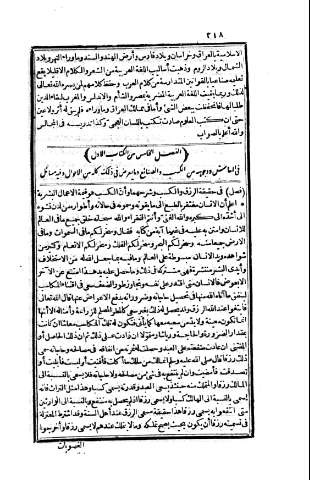 ٣١٨
الاسلامية بالعراق وخراسان وبلاد فارس وأرض الهند والسند وما وراء النهر وبلاد
الشمال وبلاد الروم وذهبت أساليب اللغة العربية من الشعر والكلام الا قليلا يقع
تعليمه صناعيا بالقوانين المتدارسة من كلام العرب وحفظ كلامهم لمن يسره الله تعالى
لذلك وربما بقيت اللغة العربية المضرية بمصر والشأم والاندلس والمغرب لبقاء الدين
طلبا لها فانحفظت بعض الشئ وأما في ممالك العراق وما وراءه فلم يبق له أثر ولا عين
حتى ان كتب العلوم صارت تكتب باللسان العجمي وكذا تدريسه في المجالس
والله أعلم بالصواب
(الفصل الخامس من الكتاب الاول)
في المعاش ووجوبه من الكسب والصنائع وما يعرض في ذلك كله من الاحوال وفيه مسائل
(فصل) في حقيقة الرزق والكسب وشرحهما وأن الكسب هو قيمة الاعمال البشرية
اعلم أن الانسان مفتقر بالطبع الى ما يقوته ويمونه في حالاته وأطواره من لدن نشوه
الى أشده الى كبره والله الغني وأنتم الفقراء والله سبحانه خلق جميع ما في العالم
للانسان وامتن به عليه في غير ما آية من كتابه فقال وسخر لكم ما في السموات وما في
الارض جميعا منه وسخر لكم البحر وسخر لكم الفلك وسخر لكم الانعام وكثير من
شواهده ويد الانسان مبسوطة على العالم وما فيه بما جعل الله له من الاستخلاف
وأيدي البشر منتشرة فهي مشتركة في ذلك وما حصل عليه يد هذا امتنع عن الآخر
الا بعوض فالانسان متى اقتدر على نفسه وتجاوز طور الضعف سعى في اقتناء المكاسب
لينفق ما آتاه الله منها في تحصيل حاجاته وضروراته بدفع الاعواض عنها قال الله تعالى
فابتغوا عند الله الرزق وقد يحصل له ذلك بغير سعي كالمطر المصلح للزراعة وأمثاله الا أنها
انما تكون معينة ولا بد من سعيه معها كما يأتي فتكون له تلك المكاسب معاشا ان كانت
بمقدار الضرورة والحاجة ورياشا ومتمولا ان زادت على ذلك ثم ان ذلك الحاصل أو
المقتنى ان عادت منفعته على العبد وحصلت له ثمرته من انفاقه في مصالحه وحاجاته سمي
ذلك رزقا قال صلى الله عليه وسلم انما لك من مالك ما أكلت فأفنيت أو لبست فأبليت أو
تصدقت فأمضيت وان لم ينتفع به في شئ من مصالحه ولا حاجاته فلا يسمى بالنسبة الى
المالك رزقا والمتملك منه حينئذ بسعي العبد وقدرته يسمى كسبا وهذا مثل التراث فانه
يسمى بالنسبة الى الهالك كسبا ولا يسمى رزقا اذ لم يحصل به منتفع وبالنسبة الى الوارثين
متى انتفعوا به يسمى رزقا هذا حقيقة مسمى الرزق عند أهل السنة وقد اشترط المعتزلة
في تسميته رزقا أن يكون بحيث يصح تملكه وما لا يتملك عندهم لا يسمى رزقا وأخرجوا
الغصوبات